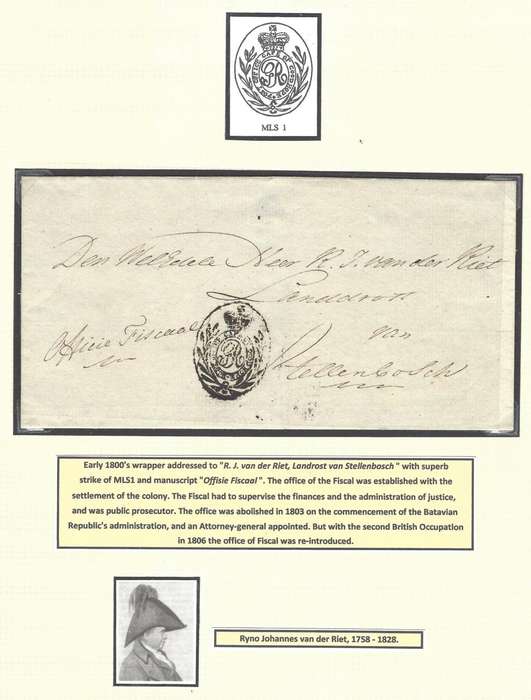 POST OFFICE CAPE OF GOOD HOPE
GR
MLS 1
Den WelEdele Heer R. J. van der Riet
Landdrost
van
Officie Fiscaal
GR
Stellenbosch
Early 1800's wrapper addressed to "R. J. van der Riet, Landrost van Stellenbosch" with superb
strike of MLS1 and manuscript "Offisie Fiscaal". The office of the Fiscal was established with the
settlement of the colony. The Fiscal had to supervise the finances and the administration of justice,
and was public prosecutor. The office was abolished in 1803 on the commencement of the Batavian
Republic's administration, and an Attorney-general appointed. But with the second British Occupation
in 1806 the office of Fiscal was re-introduced.
Ryno Johannes van der Riet, 1758 - 1828.